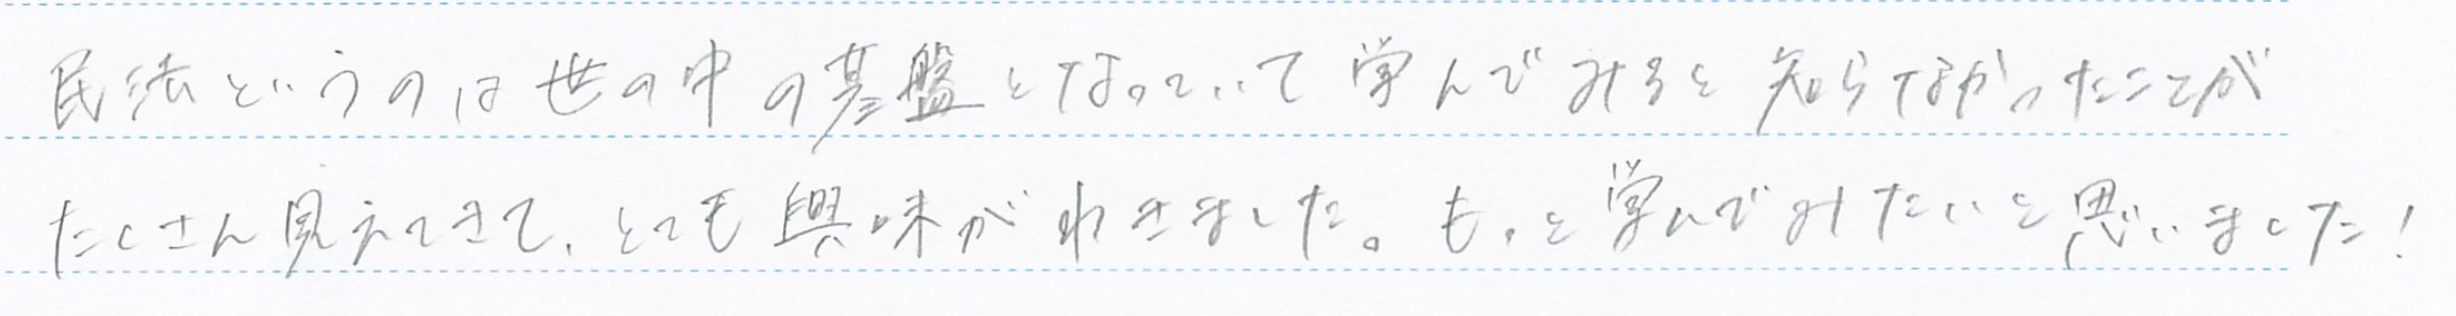 民法というのは世の中の基盤となっていて学んでみると知らなかったことが
たくさん見えてきて、とても興味がわきました。もっと学んでみたいと思いました!